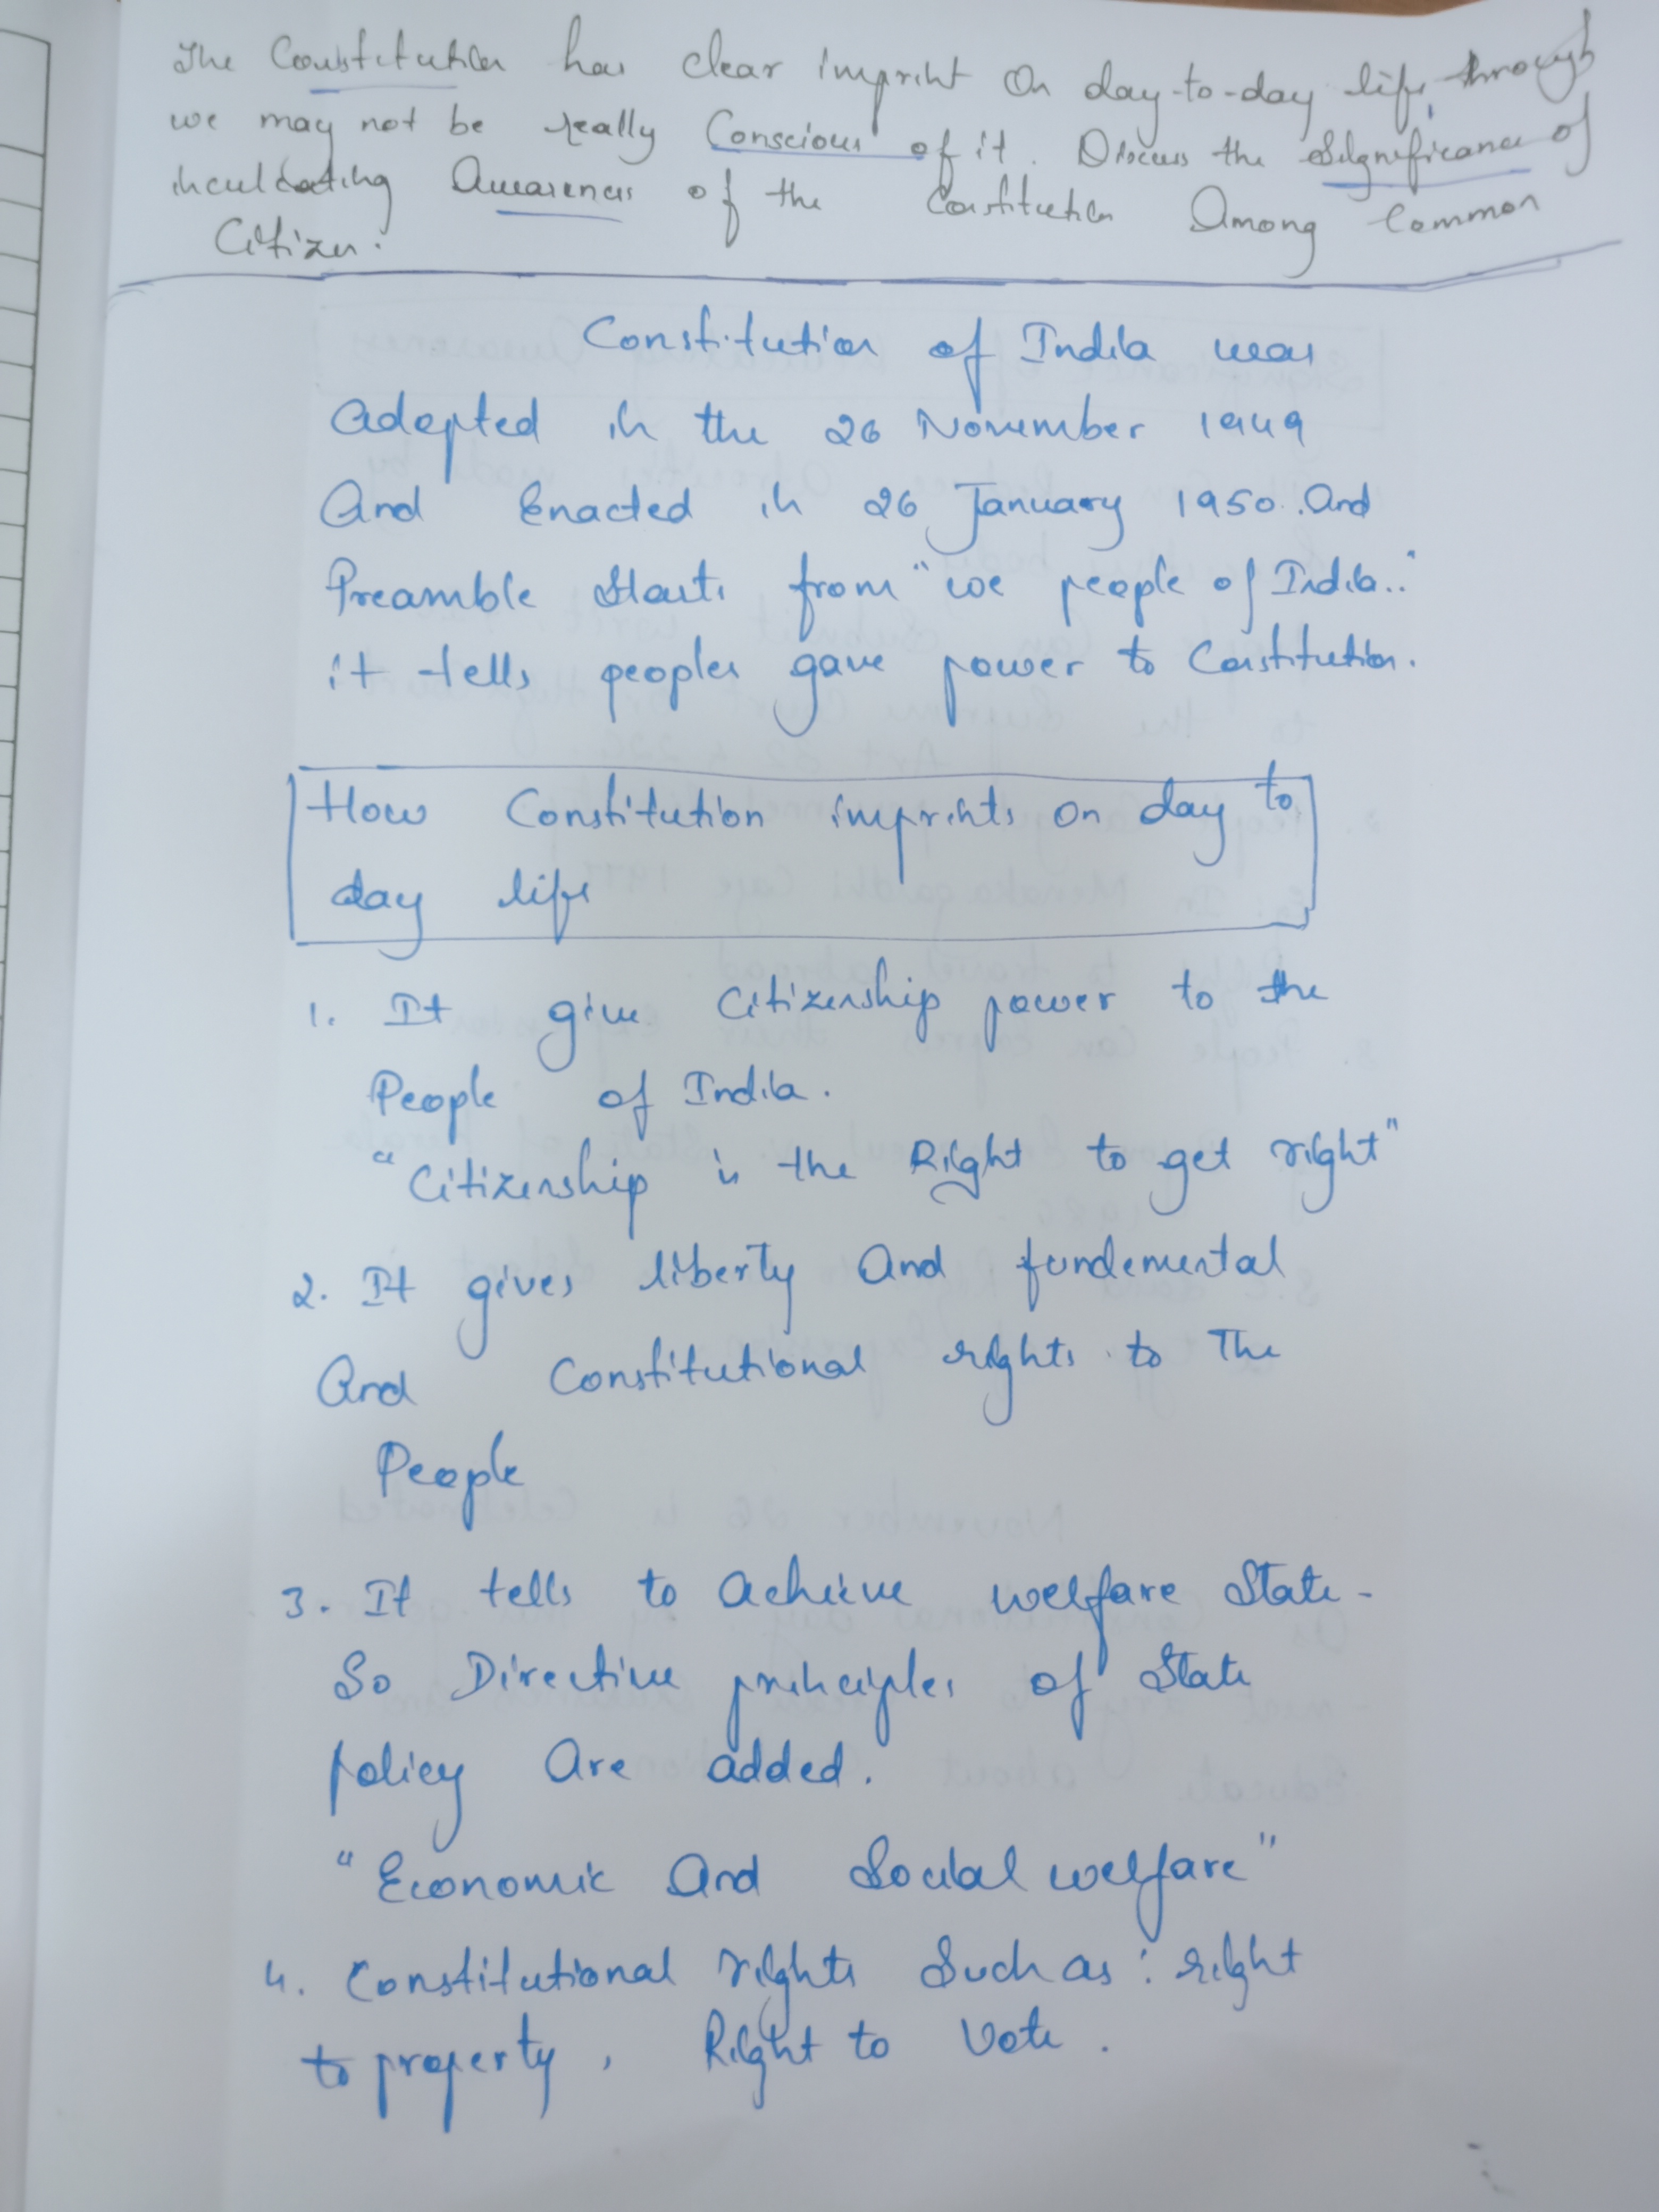 The Constitution has clear imprint on day-to-day life through
we may not be really Conscious of it. Discuss the significance of
inculcating Awareness of the Constitution Among Common
Citizen.
Constitution of India was
Adopted in the 26 November 1949
And Enacted in 26 January 1950. And
Preamble starts from "we people of India.."
it tells peoples gave power to Constitution.
How Constitution imprints on day to
day life
1. It give Citizenship power to the
People of India.
"Citizenship is the Right to get right"
2. It gives liberty And fundemental
And Constitutional rights to The
People
3. It tells to Achieve welfare State-
So Directive principles of State
policy Are added.
"Economic And Social welfare"
4. Constitutional rights Such as : right
to property, Right to Vote.